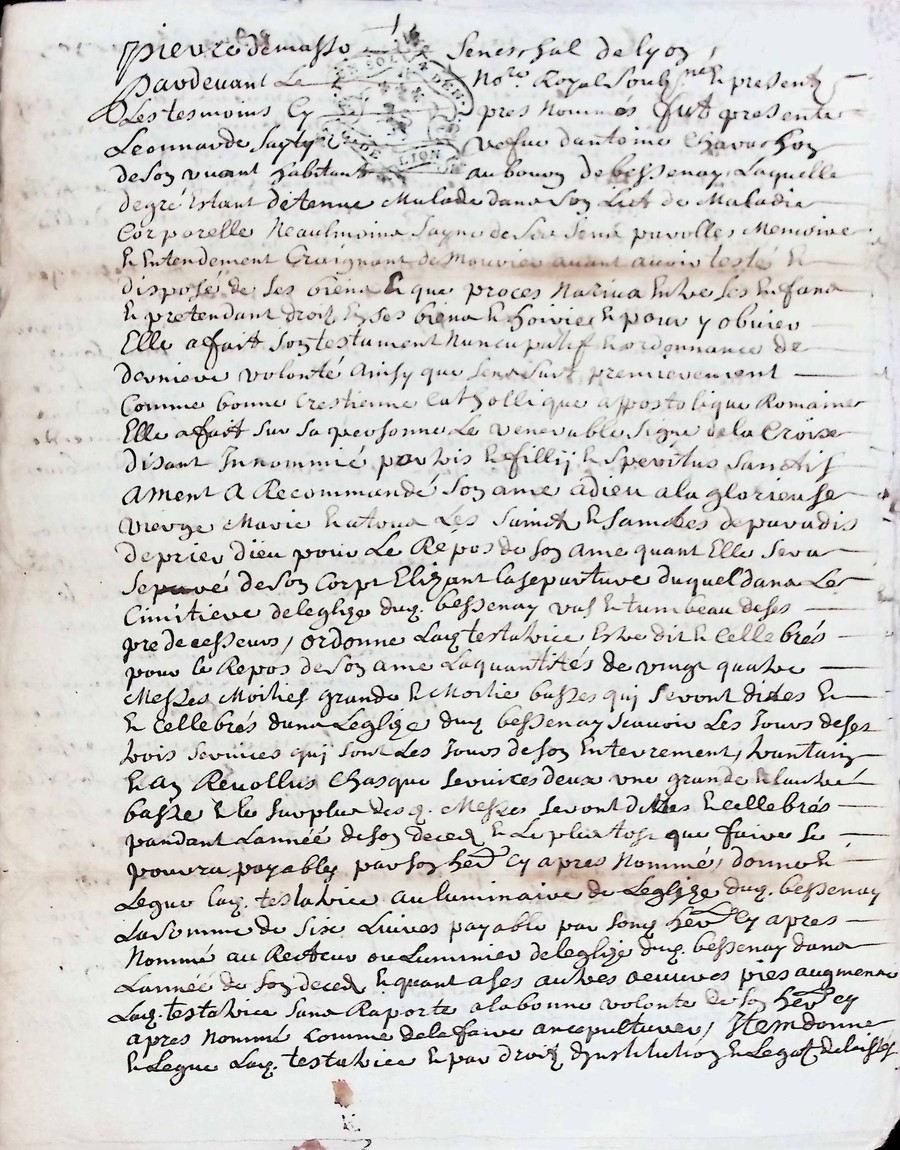 Pierre demasso Seneschal de lyon
Pardevant Le No.re Royal Soubs.né & present
Les tesmoins Cy pres Nommes fut presente
Leonnarde vefue dantoine Chavachon
de Son vivant habitant au bourg de bessenay, Laquelle
de gré Estant détenue Malade dans Son Lict de Maladie
Corporelle Neaulmoins Sayne de Ses Sens parolles Memoire
& Entendement Craignant de Mourier avant avoir testé &
disposé de Ses biens & que proces Nariva Entre Ses Enfans
& pretendant droit En Ses biens & hoirie & pour y obvier
Elle a fait Son testament Nuncupatif & ordonnance de
derniere volonté Ainsy que Sensuit premierement
Comme bonne Crestienne Catholicque appostolique Romaine
Elle a fait Sur Sa personne Le venerable Signe de la Croix
disant Innommié patris & fillij & Speritus Sanctis
Ament A Recommandé Son ame a dieu a la glorieuse
vierge Marie & a tous Les Saincts & Sainctes de paradis
de prier dieu pour Le Repos de Son ame quant Elle Sera
Separé de Son Corpt Elizant La Sepurture duquel dans Le
Cimitiere de leglize dud. bessenay vas & tumbeau de Ses
predecesseurs, ordonne Lad. testatrice Estre dit & Cellebrés
pour le Repos de Son ame La quantités de vingt quatre
Messes Moities grande & Moitie basses qui Seront dittes &
& Cellebrés dans Leglize dud. bessenay Scavoir Les Jours de Ses
trois Services qui Sont Les Jours de Son Enterrement, trantain
& an Revollus Chasque Services deux vne grande & lautre
basse & le Surplus desd. Messes Seront dittes & Cellebrés
pandant Lannée de Son deced & Le plustost que faire Se
pourra payables par Son her. Cy apres Nommé, donne &
Legue Lad. testatrice au luminaire de Leglize dud. bessenay
La Somme de Six Livres payable par Sond. her. Cy apres
Nommé au Recteur ou Luminier de leglize dud. bessenay dans
Lannée de Son deced & quant a Ses autres oeuvres pies augmenc
Lad. testatrice Sans Raporte a la bonne volonte de Son her. cy
apres Nommé Comme de la faire ancepulturer, Item donne
& Legue Lad. testatrice & par droit dinstitution & Legat delaisse